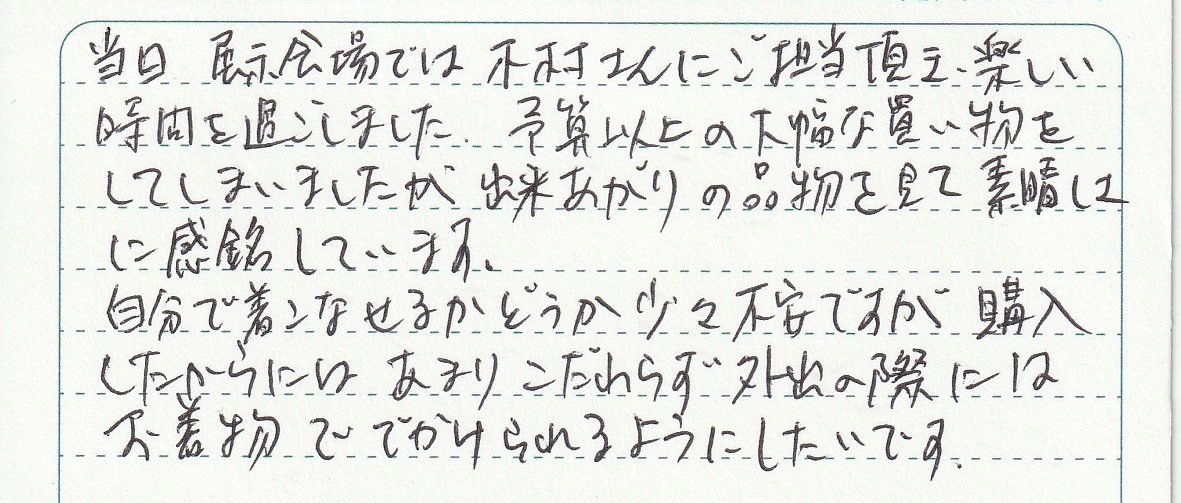 当日 展示会場では 木村さんにご担当頂き、楽しい
時間を過ごしました。予算以上の大幅な買い物を
してしまいましたが 出来あがりの品物を見て素晴しさ
に感銘しています。
自分で着こなせるかどうか少々不安ですが 購入
したからには あまりこだわらず外出の際には
お着物ででかけられるようにしたいです。